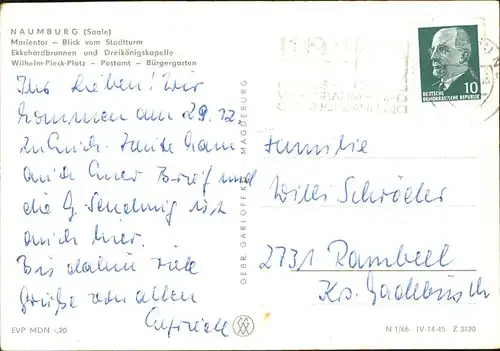 NAUMBURG (Saale)
Marientor – Blick vom Stadtturm
Ekkehardbrunnen und Dreikönigskapelle
Wilhelm-Pieck-Platz – Postamt – Bürgergarten
Ihr Lieben! Wir
kommen am 29. 12
zu Euch. Heute kam
auch Euer Brief und
die G-Sendung ist
auch hier.
Bis dahin viele
Grüße von allen
GEBR. GARLOFF KG MAGDEBURG
DEUTSCHE
DEMOKRATISCHE REPUBLIK
10
Familie
Willi Schröder
2731 Rambeel
Krs. Gadebusch
EVP MDN -,20
N 1/66 IV-14-45 Z 3120